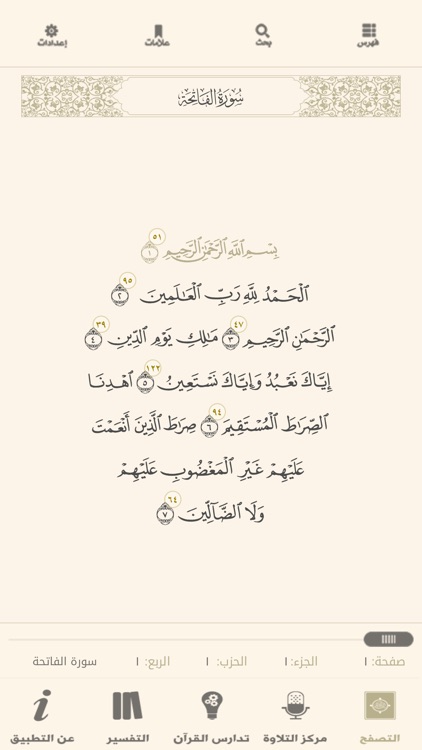 فهرس بحث علامات إعدادات
سُورَةُ الفَاتِحَةِ
بِسْمِ اللَّهِ الرَّحْمَٰنِ الرَّحِيمِ ١ ٥١
الْحَمْدُ لِلَّهِ رَبِّ الْعَالَمِينَ ٢ ٩٥
الرَّحْمَٰنِ الرَّحِيمِ ٣ ٤٧ مَالِكِ يَوْمِ الدِّينِ ٤ ٣٩
إِيَّاكَ نَعْبُدُ وَإِيَّاكَ نَسْتَعِينُ ٥ ١٢٢ اهْدِنَا
الصِّرَاطَ الْمُسْتَقِيمَ ٦ ٩٤ صِرَاطَ الَّذِينَ أَنْعَمْتَ
عَلَيْهِمْ غَيْرِ الْمَغْضُوبِ عَلَيْهِمْ
وَلَا الضَّالِّينَ ٧ ٦٤
صفحة: ١ الجزء: ١ الحزب: ١ الربع: ١ سورة الفاتحة
التصفح مركز التلاوة تدارس القرآن التفسير عن التطبيق